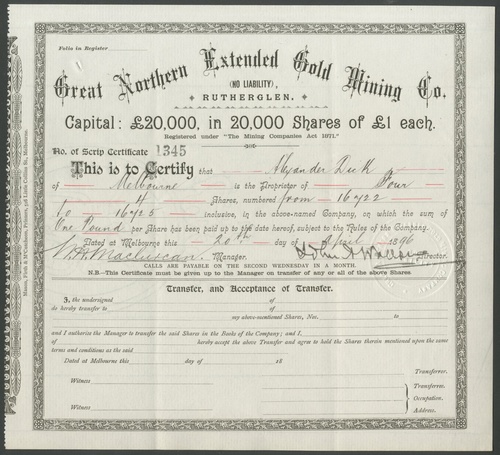 Folio in Register
Great Northern Extended Gold Mining Co.
(NO LIABILITY),
RUTHERGLEN.
Capital: £20,000, in 20,000 Shares of £1 each.
Registered under "The Mining Companies Act 1871."
No. of Scrip Certificate 1345
This is to Certify that Alexander Dick
of Melbourne is the Proprietor of Four
4 Shares, numbered from 16722
to 16725 inclusive, in the above-named Company, on which the sum of
One Pound per Share has been paid up to the date hereof, subject to the Rules of the Company.
Dated at Melbourne this 20th day of April 1896
Manager. Director.
CALLS ARE PAYABLE ON THE SECOND WEDNESDAY IN A MONTH.
N.B.—This Certificate must be given up to the Manager on transfer of any or all of the above Shares.
Transfer, and Acceptance of Transfer.
I, the undersigned of
do hereby transfer to of
my above-mentioned Shares, Nos. to
and I authorize the Manager to transfer the said Shares in the Books of the Company; and I.
of hereby accept the above Transfer and agree to hold the Shares therein mentioned upon the same
terms and conditions as the said
Dated at Melbourne this day of 18
Transferror.
Witness Transferree.
Occupation.
Witness Address.